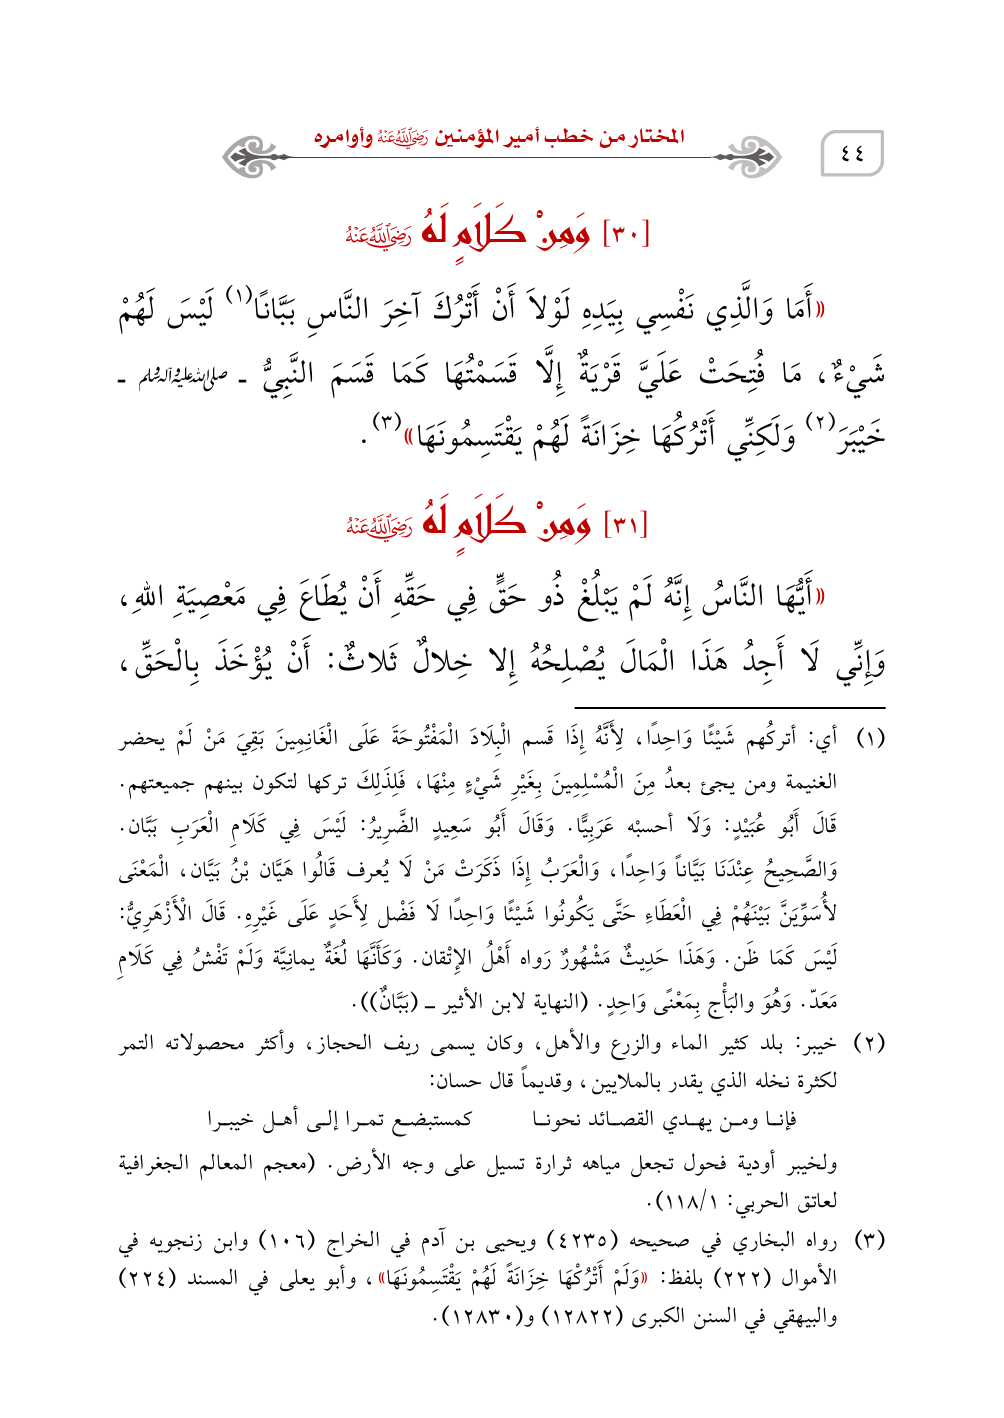 ٤٤
المختار من خطب أمير المؤمنين رَضِيَ اللَّهُ عَنْهُ وأوامره
[٣٠] وَمِنْ كَلَامٍ لَهُ رَضِيَ اللَّهُ عَنْهُ
«أَمَا وَالَّذِي نَفْسِي بِيَدِهِ لَوْلاَ أَنْ أَتْرُكَ آخِرَ النَّاسِ بَبَّانًا(١) لَيْسَ لَهُمْ
شَيْءٌ، مَا فُتِحَتْ عَلَيَّ قَرْيَةٌ إِلَّا قَسَمْتُهَا كَمَا قَسَمَ النَّبِيُّ ـ صلى الله عليه وآله وسلم ـ
خَيْبَرَ(٢) وَلَكِنِّي أَتْرُكُهَا خِزَانَةً لَهُمْ يَقْتَسِمُونَهَا»(٣).
[٣١] وَمِنْ كَلَامٍ لَهُ رَضِيَ اللَّهُ عَنْهُ
«أَيُّهَا النَّاسُ إِنَّهُ لَمْ يَبْلُغْ ذُو حَقٍّ فِي حَقِّهِ أَنْ يُطَاعَ فِي مَعْصِيَةِ اللهِ،
وَإِنِّي لَا أَجِدُ هَذَا الْمَالَ يُصْلِحُهُ إِلا خِلالٌ ثَلاثٌ: أَنْ يُؤْخَذَ بِالْحَقِّ،
(١) أي: أتركُهم شَيْئًا وَاحِدًا، لِأَنَّهُ إِذَا قَسم الْبِلَادَ الْمَفْتُوحَةَ عَلَى الْغَانِمِينَ بَقِيَ مَنْ لَمْ يحضر
الغنيمة ومن يجئ بعدُ مِنَ الْمُسْلِمِينَ بِغَيْرِ شَيْءٍ مِنْهَا، فَلِذَلِكَ تركها لتكون بينهم جميعتهم.
قَالَ أَبُو عُبَيْدٍ: وَلَا أحسبْه عَرَبِيًّا. وَقَالَ أَبُو سَعِيدٍ الضَّرِيرُ: لَيْسَ فِي كَلَامِ الْعَرَبِ بَبَّان.
وَالصَّحِيحُ عِنْدَنَا بَيَّاناً وَاحِدًا، وَالْعَرَبُ إِذَا ذَكَرَتْ مَنْ لَا يُعرف قَالُوا هَيَّان بْنُ بَيَّان، الْمَعْنَى
لأُسَوِّيَنَّ بَيْنَهُمْ فِي الْعَطَاءِ حَتَّى يَكُونُوا شَيْئًا وَاحِدًا لَا فَضْل لِأَحَدٍ عَلَى غَيْرِهِ. قَالَ الْأَزْهَرِيُّ:
لَيْسَ كَمَا ظَن. وَهَذَا حَدِيثٌ مَشْهُورٌ رَواه أَهْلُ الإِتْقان. وَكَأَنَّهَا لُغَةٌ يمانِيَّة وَلَمْ تَفْشُ فِي كَلَامِ
مَعَدّ. وَهُوَ والبَأْج بِمَعْنًى وَاحِدٍ. (النهاية لابن الأثير ــ (بَبَّانٌ)).
(٢) خيبر: بلد كثير الماء والزرع والأهل، وكان يسمى ريف الحجاز، وأكثر محصولاته التمر
لكثرة نخله الذي يقدر بالملايين، وقديماً قال حسان:
فإنـا ومـن يهـدي القصـائد نحونـا كمستبضـع تمـرا إلـى أهـل خيبـرا
ولخيبر أودية فحول تجعل مياهه ثرارة تسيل على وجه الأرض. (معجم المعالم الجغرافية
لعاتق الحربي: ١١٨/١).
(٣) رواه البخاري في صحيحه (٤٢٣٥) ويحيى بن آدم في الخراج (١٠٦) وابن زنجويه في
الأموال (٢٢٢) بلفظ: «وَلَمْ أَتْرُكْهَا خِزَانَةً لَهُمْ يَقْتَسِمُونَهَا»، وأبو يعلى في المسند (٢٢٤)
والبيهقي في السنن الكبرى (١٢٨٢٢) و(١٢٨٣٠).